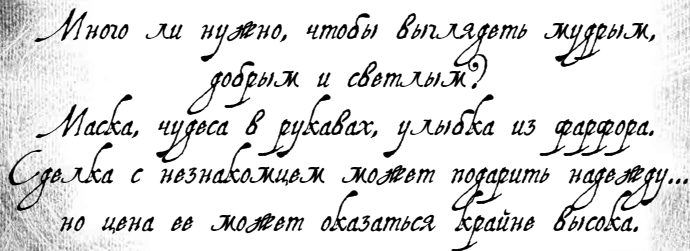 Много ли нужно, чтобы выглядеть мудрым,
добрым и светлым?
Маска, чудеса в рукавах, улыбка из фарфора.
Сделка с незнакомцем может подарить надежду...
но цена ее может оказаться крайне высока.